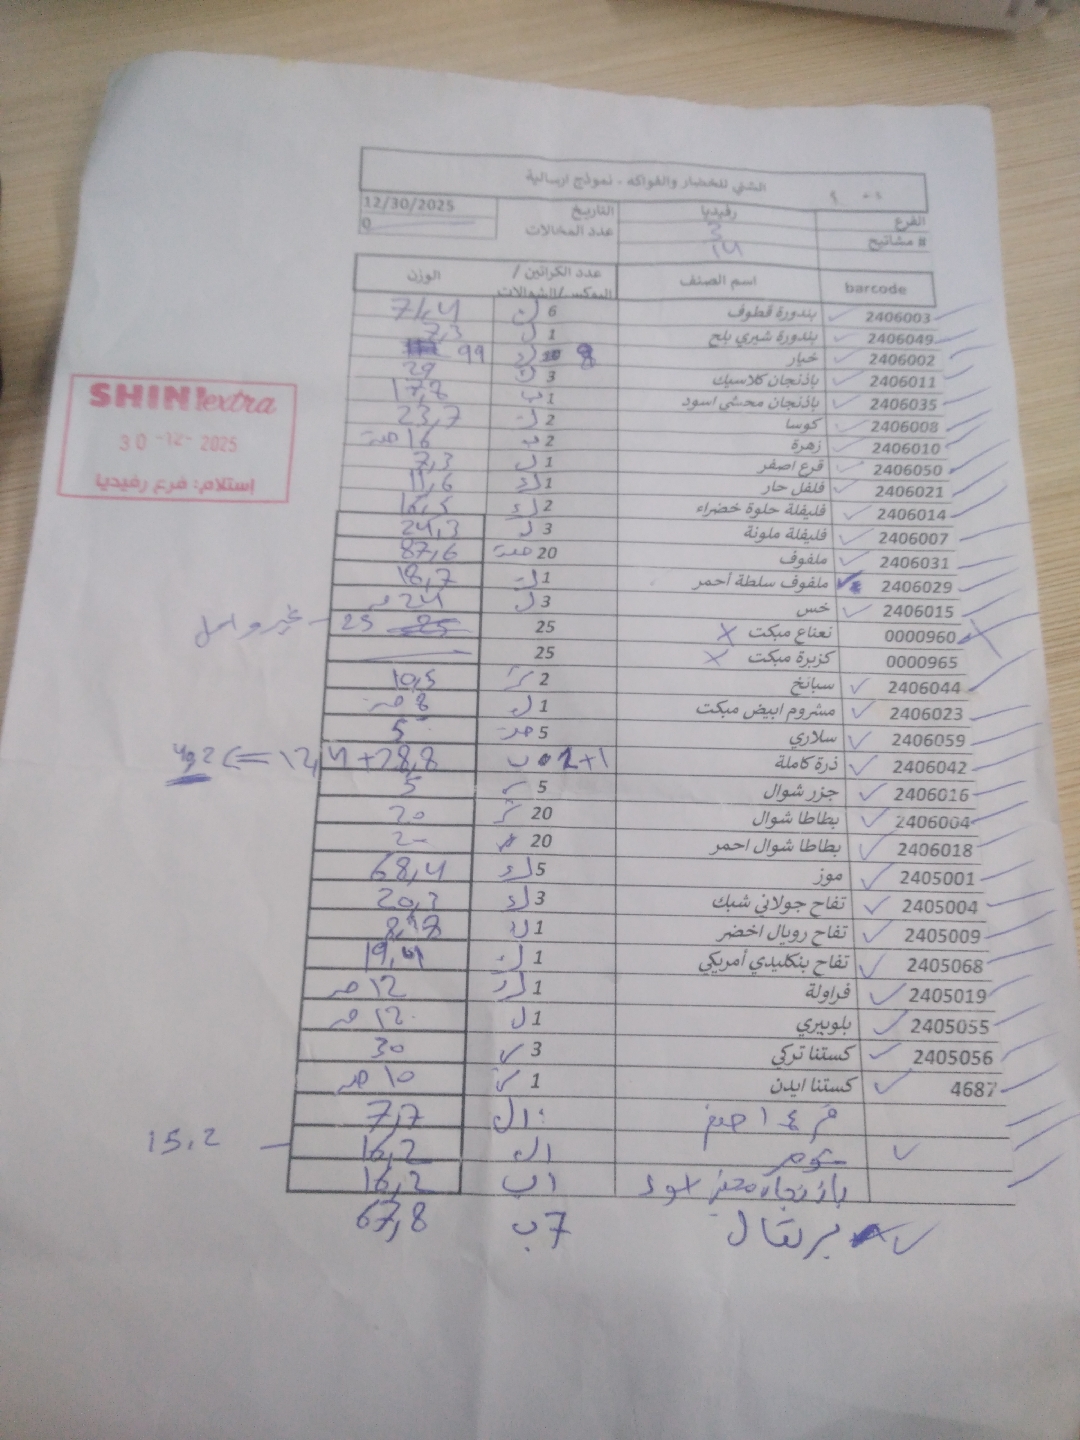 الشني للخضار والفواكه - نموذج ارسالية
الفرع رفيديا التاريخ 12/30/2025
# مشاتيح 3 عدد المخالات 0
14
barcode اسم الصنف عدد الكراتين / البوكس/الشوالات الوزن
2406003 بندورة قطوف 6 71,4
2406049 بندورة شيري بلح 1 ل 7,3
2406002 خيار 8 99
2406011 باذنجان كلاسيك 3 29
2406035 باذنجان محشي اسود 1 ب 17,8
2406008 كوسا 2 23,7
2406010 زهرة 2 ب 16
2406050 قرع اصفر 1 ل 7,3
2406021 فلفل حار 1 11,6
2406014 فليفلة حلوة خضراء 2 16,5
2406007 فليفلة ملونة 3 ل 24,3
2406031 ملفوف 20 87,6
2406029 ملفوف سلطة أحمر 1 18,7
2406015 خس 3 ل 24
0000960 نعناع مبكت 25 25 25 غير واصل
0000965 كزبرة مبكت 25
2406044 سبانخ 2 10,5
2406023 مشروم ابيض مبكت 1 ل 8
2406059 سلاري 5 5
2406042 ذرة كاملة 1+2 ب 28,8 + 12,4 <=
2406016 جزر شوال 5 5
2406004 بطاطا شوال 20 20
2406018 بطاطا شوال احمر 20 20
2405001 موز 5 68,4
2405004 تفاح جولاني شبك 3 20,3
2405009 تفاح رويال اخضر 1
2405068 تفاح بنكليدي أمريكي 1 19,4
2405019 فراولة 1 12
2405055 بلوبيري 1 ل 12
2405056 كستنا تركي 3 30
4687 كستنا ايدن 1 10
1 ل 7,7
ثوم 1 ل 16,2 15.2
باذنجان محشي اسود 1 ب 16,2
برتقال 7 ب 67,8
SHINI extra
30 -12- 2025
إستلام: فرع رفيديا